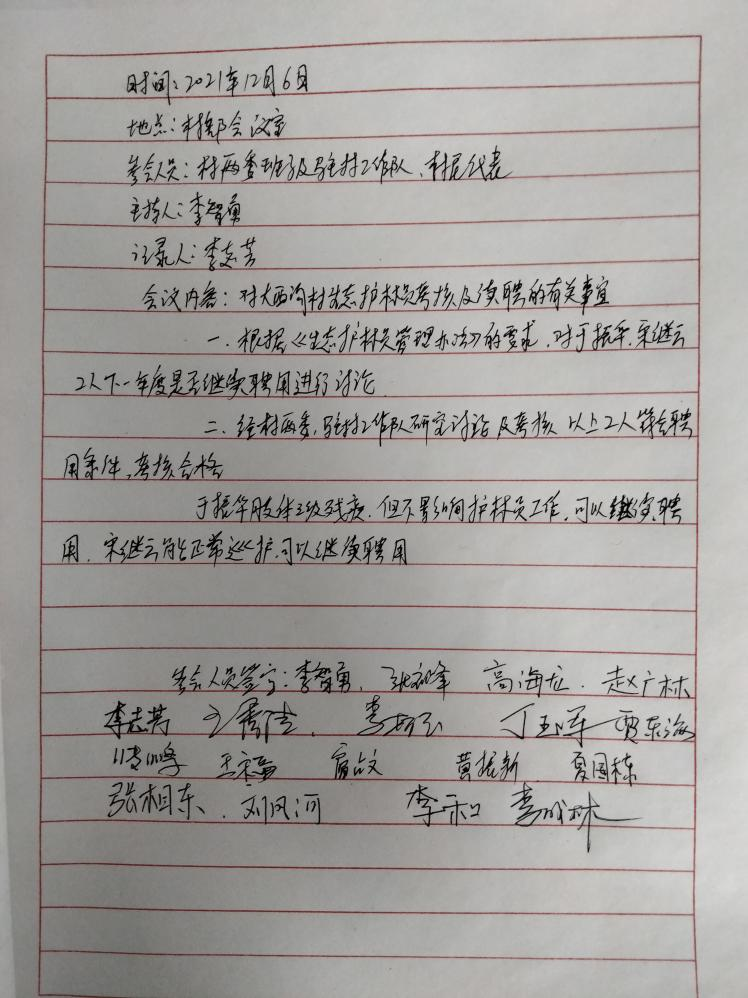 时间：2021年12月6日
地点：村部会议室
参会人员：村两委班子及驻村工作队、村民代表
主持人：李智勇
记录人：李志芳
会议内容：对大西沟村生态护林员考核及续聘的有关事宜
一、根据《生态护林员管理办法》的要求，对于振华、宋继云
2人下一年度是否继续聘用进行讨论
二、经村两委、驻村工作队研究讨论及考核，以上2人符合聘
用条件，考核合格
于振华肢体三级残疾，但不影响护林员工作，可以继续聘
用，宋继云能正常巡护，可以继续聘用
参会人员签字：李智勇、高海龙、赵广林
李志芳 贾东海
黄振新 夏国栋
张相东、刘凤河 李和 李成林